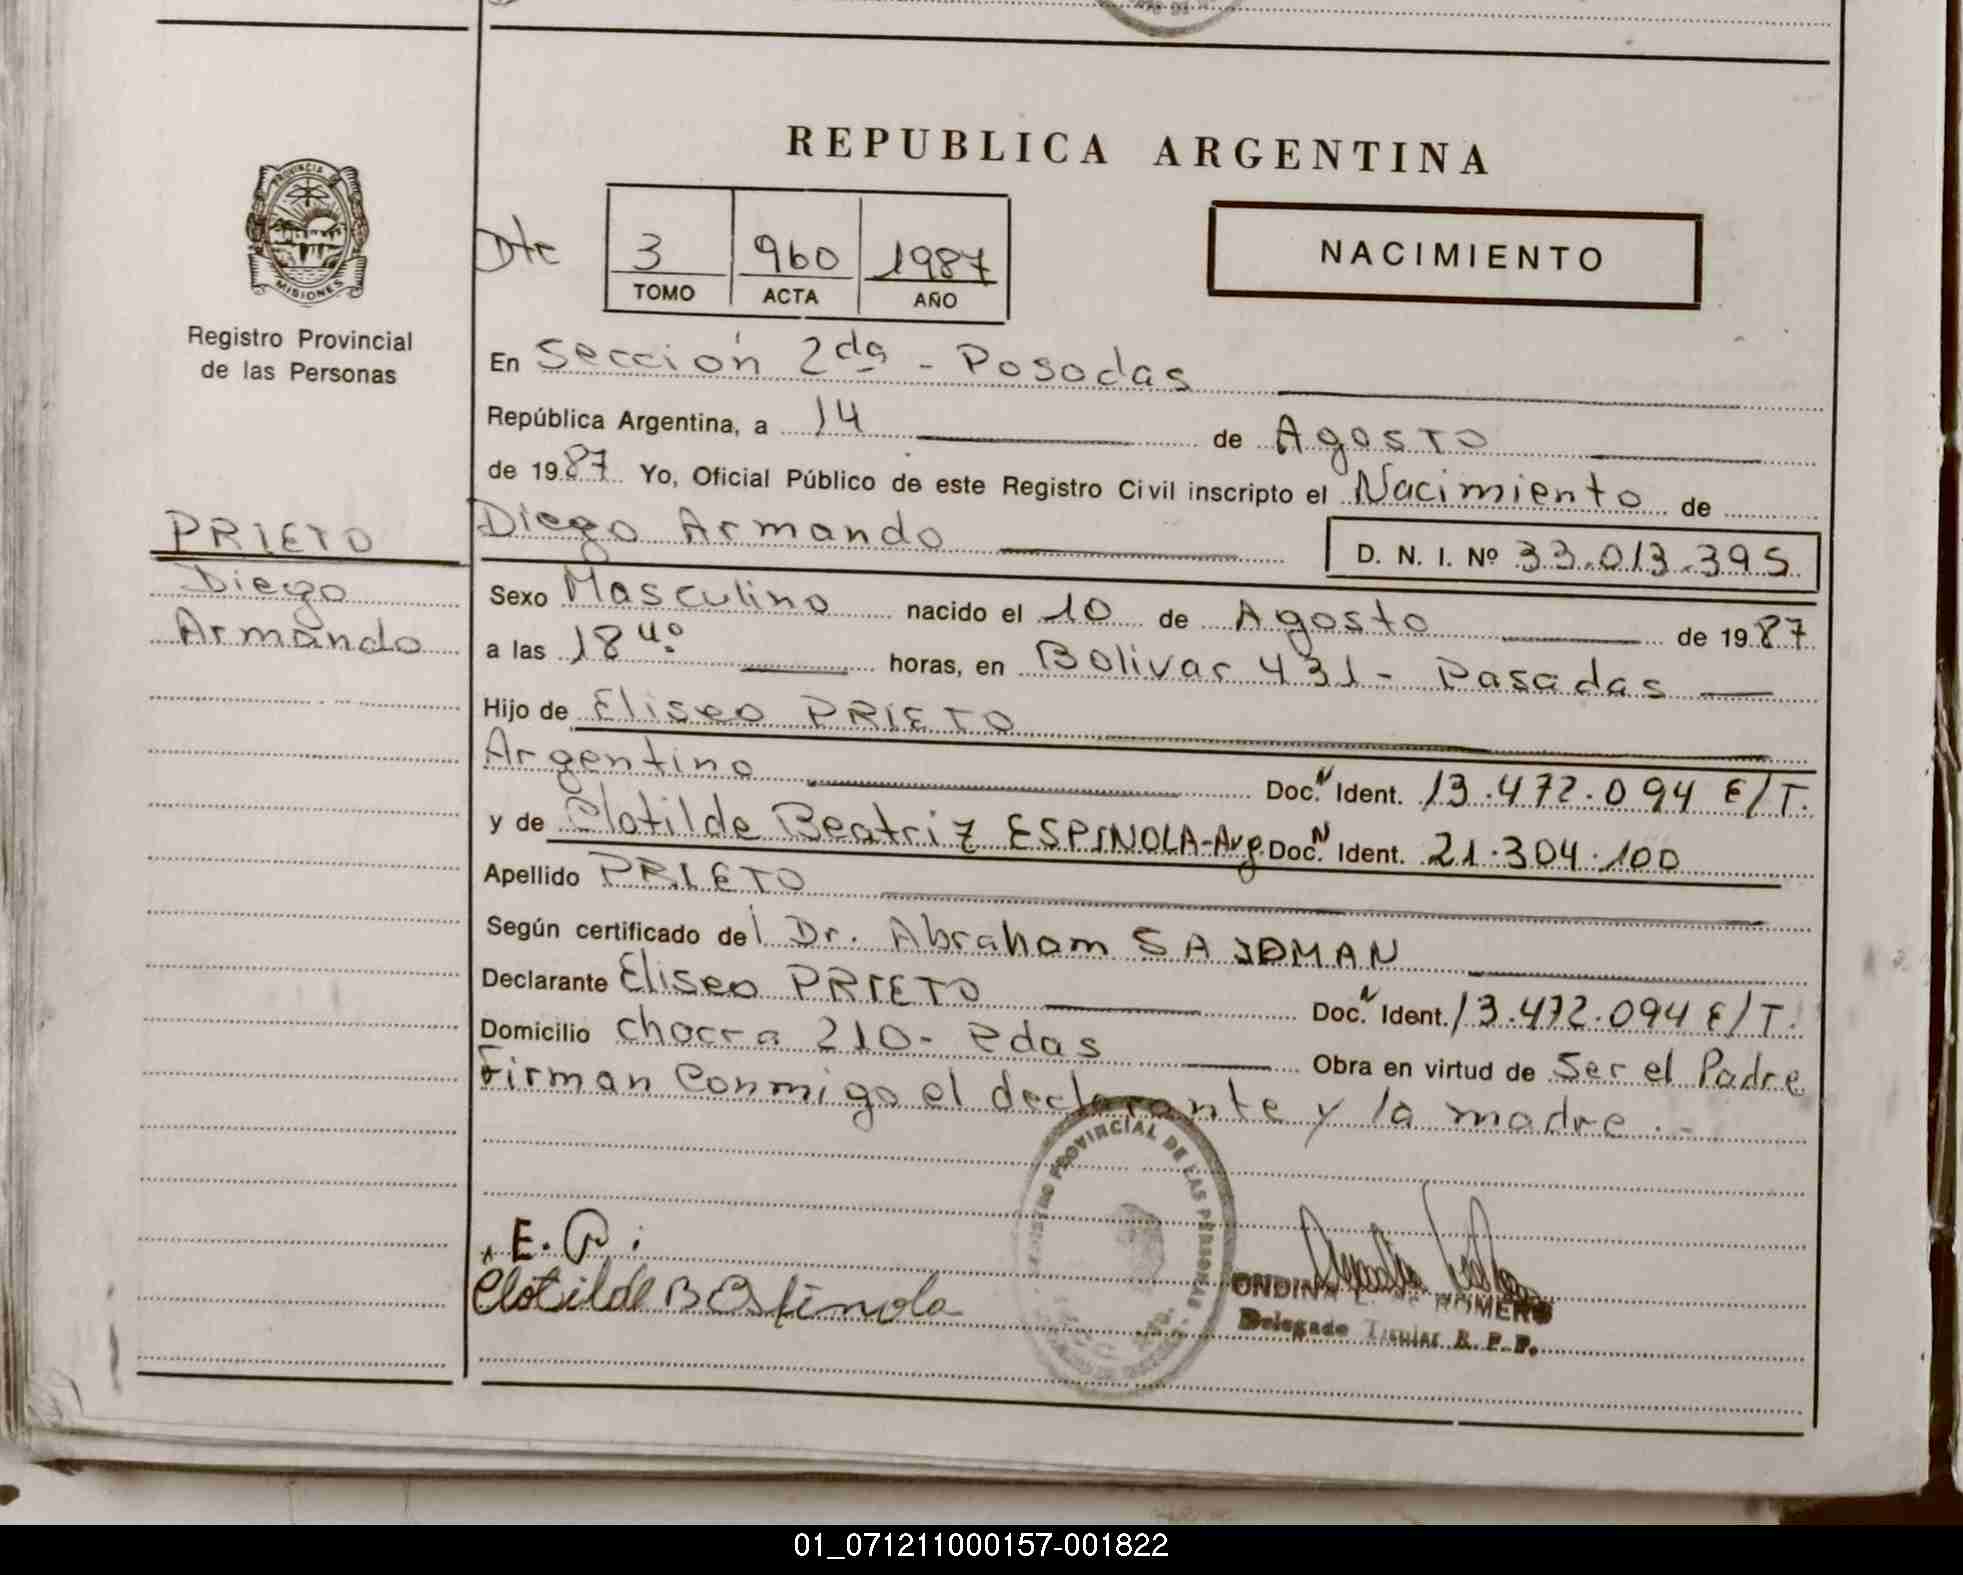 REPUBLICA ARGENTINA
PROVINCIA
MISIONES
Registro Provincial
de las Personas
Dte
3 960 1987
TOMO ACTA AÑO
NACIMIENTO
En Sección 2da - Posadas
República Argentina, a 14 de Agosto
de 1987 Yo, Oficial Público de este Registro Civil inscripto el Nacimiento de
Diego Armando D. N. I. Nº 33.013.395
PRIETO
Diego
Armando
Sexo Masculino nacido el 10 de Agosto de 1987
a las 18 40 horas, en Bolivar 431 - Posadas
Hijo de Eliseo PRIETO
Argentino Doc. N Ident. 13.472.094 E/T.
y de Clotilde Beatriz ESPINOLA-Arg. Doc. N Ident. 21.304.100
Apellido PRIETO
Según certificado del Dr. Abraham
Declarante Eliseo PRIETO Doc. N Ident. 13.472.094 E/T.
Domicilio chacra 210 - Pdas Obra en virtud de Ser el Padre
Firman conmigo el declarante y la madre.-
REGISTRO PROVINCIAL DE LAS PERSONAS
E. P.
Clotilde B Espinola
ONDINA ROMERO
Delegado Titular R. P. P.
01_071211000157-001822